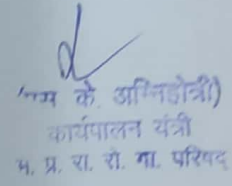 के. अग्निहोत्री)
कार्यपालन यंत्री
म. प्र. रा. रो. गा. परिषद